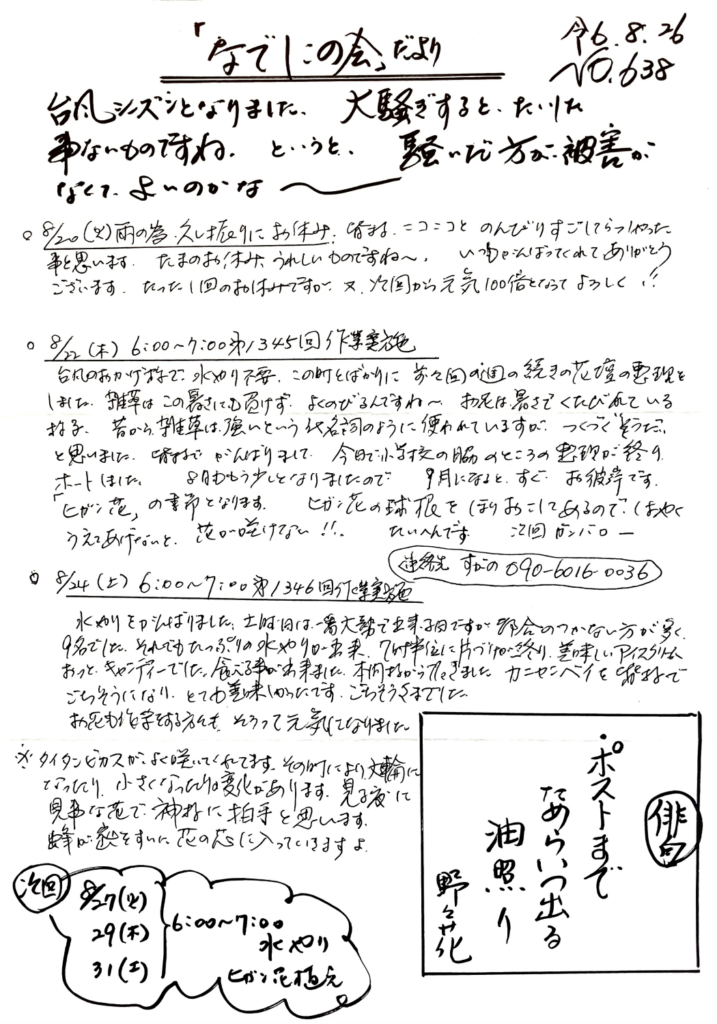 「なでしこの会」だより
令6.8.26
NO.638
台風シーズンとなりました。大騒ぎすると、たいした
事ないものですね。というと、騒いだ方が、被害が
なくて、よいのかな〜
○ 8/20(火)雨の為、久し振りにお休み。皆様、ニコニコと のんびりすごしてらっしゃった
事と思います。たまのお休み、うれしいものですね〜。いつもがんばってくれてありがとう
ございます。たった1回のお休みですが、又、次回から元気100倍となって よろしく!!
○ 8/22(木)6:00〜7:00 第1345回作業実施
台風のおかげ様で、水やり不要。この時とばかりに 前々回の週の続きの花壇の整理を
しました。雑草はこの暑さにも負けず、よくのびるんですね〜 お花は暑さでくたびれている
様子。昔から、雑草は、強いという代名詞のように使われていますが、つくづく“そうだ”
と思いました。皆様で がんばりまして、今日で小学校の脇のところの整理が終り
ホートしました。8月ももう少しとなりましたので 9月になると、すぐ お彼岸です。
「ヒガン花」の季節となります。ヒガン花の球根を ほりおこしてあるので、はやく
うえてあげないと、花が咲けない!!、たいへんです 次回ガンバロー
連絡先 すがの 090-6016-0036
○ 8/24(土)6:00〜7:00 第1346回作業実施
水やりをがんばりました。土曜日は、一番大勢で出来る日ですが 都合のつかない方が多く、
9名でした。それでもたっぷりの水やりが出来、7時半位に片づけが終り、美味しいアイスクリーム
おっと、キャンディーでした。食べる事が出来ました。本間様から頂きました カニセンベイを皆様で
ごちそうになり、とても美味しかったです。ごちそうさまでした。
お花も作業をする方々も、そろって元気になりました
※ タイタンビカスが、よく咲いてくれてます。その時により、大輪に
なったり、小さくなったり変化があります。見る度に
見事な花で、神様に拍手と思います。
蜂が、蜜をすいに花の芯に入っていきますよ
俳句
ポストまで
ためらいつ出る
油照り
野々花
次回
8/27(火)
29(木)
31(土)
6:00〜7:00
水やり
ヒガン花植え